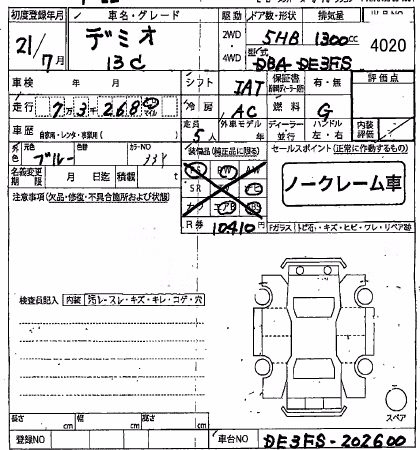 初度登録年月 車名・グレード 駆動 ドア数・形状 排気量
21/7 デミオ 13C 2WD 4WD 5HB 1300cc 4020
型式 DBA-DE3FS
車検 年 月 シフト IAT 保証書 有・無 評価点
走行 7万3千268 km マイル 冷房 AC 燃料 G
車歴 自家用・レンタ・教習用( ) 乗員 5人 外車モデル 年 ディーラー 並行 ハンドル 左・右 内装評価
色 元色 ブルー 色替 カラーNO 装備品(純正品に限る) セールスポイント(正常に作動するもの)
名義変更期限 月 日迄 積載 t PS PW AW
SR カワ エアB
ノークレーム車
注意事項(欠品・修復・不具合箇所および状態)
R券 10410円 Fガラス(トビ石・キズ・ヒビ・ワレ・リペア跡)
検査員記入 内装 汚レ・スレ・キズ・キレ・コゲ・穴
スペア
長さ cm 幅 cm 高さ cm
登録NO 車台NO DE3FS-202600